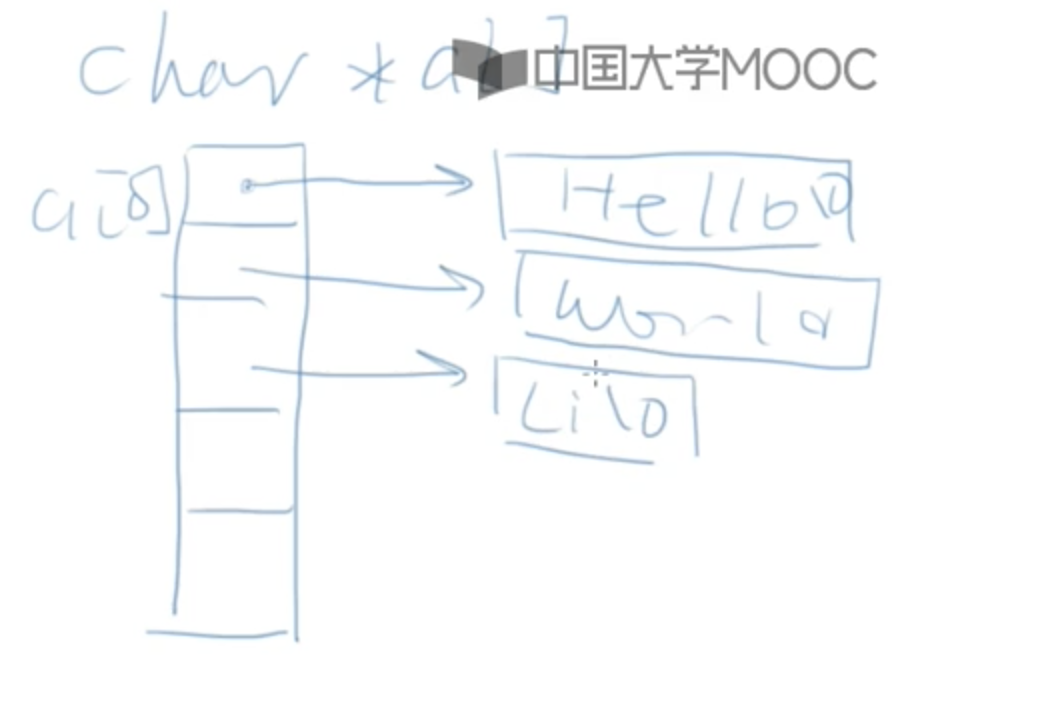 char *a[]
中国大学MOOC
a[0]
Hello\0
World
Li\0